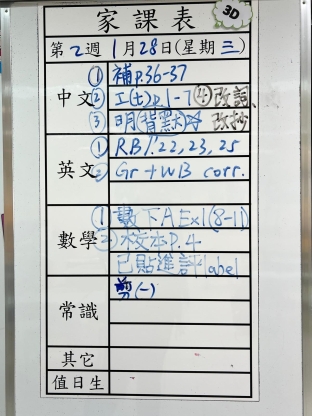 家課表
3D
第2週 1月28日(星期三)
中文
① 補P.36-37
② 工(七)P.1-7 ④改詞、
③ 明(背默) 改抄
英文
① RB P.22, 23, 25
② Gr + WB corr.
數學
① 下A Ex1(8-11)
② P.4
已貼進評label
常識
(一)
其它
值日生